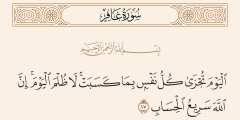 سُورَةُ غَافِر
بِسْمِ اللَّهِ الرَّحْمَٰنِ الرَّحِيمِ
ٱلْيَوْمَ تُجْزَىٰ كُلُّ نَفْسٍۭ بِمَا كَسَبَتْ ۚ لَا ظُلْمَ ٱلْيَوْمَ ۚ إِنَّ
ٱللَّهَ سَرِيعُ ٱلْحِسَابِ ١٧